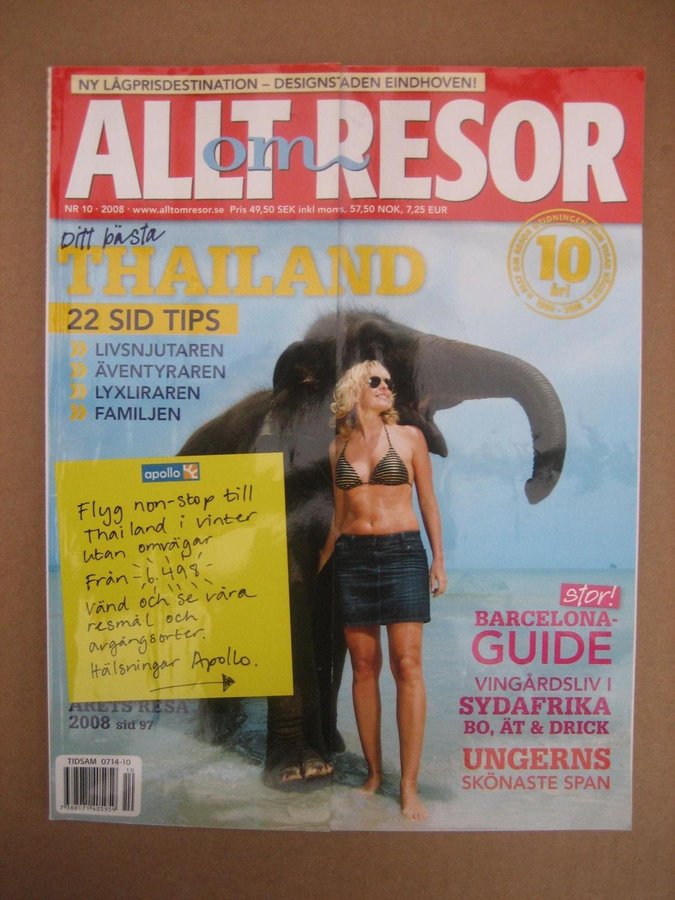 NY LÅGPRISDESTINATION – DESIGNSTADEN EINDHOVEN!
ALLT om RESOR
NR 10 · 2008 · www.alltomresor.se Pris 49,50 SEK inkl moms, 57,50 NOK, 7,25 EUR
Ditt bästa
THAILAND
22 SID TIPS
LIVSNJUTAREN
ÄVENTYRAREN
LYXLIRAREN
FAMILJEN
10
år!
apollo
Flyg non-stop till
Thailand i vinter
utan omvägar
Från 6.498:-
Vänd och se våra
resmål och
avgångsorter.
Hälsningar Apollo.
ÅRETS RESA
2008 sid 97
stor!
BARCELONA-
GUIDE
VINGÅRDSLIV I
SYDAFRIKA
BO, ÄT & DRICK
UNGERNS
SKÖNASTE SPAN
TIDSAM 0714-10
10
7 388071 405959